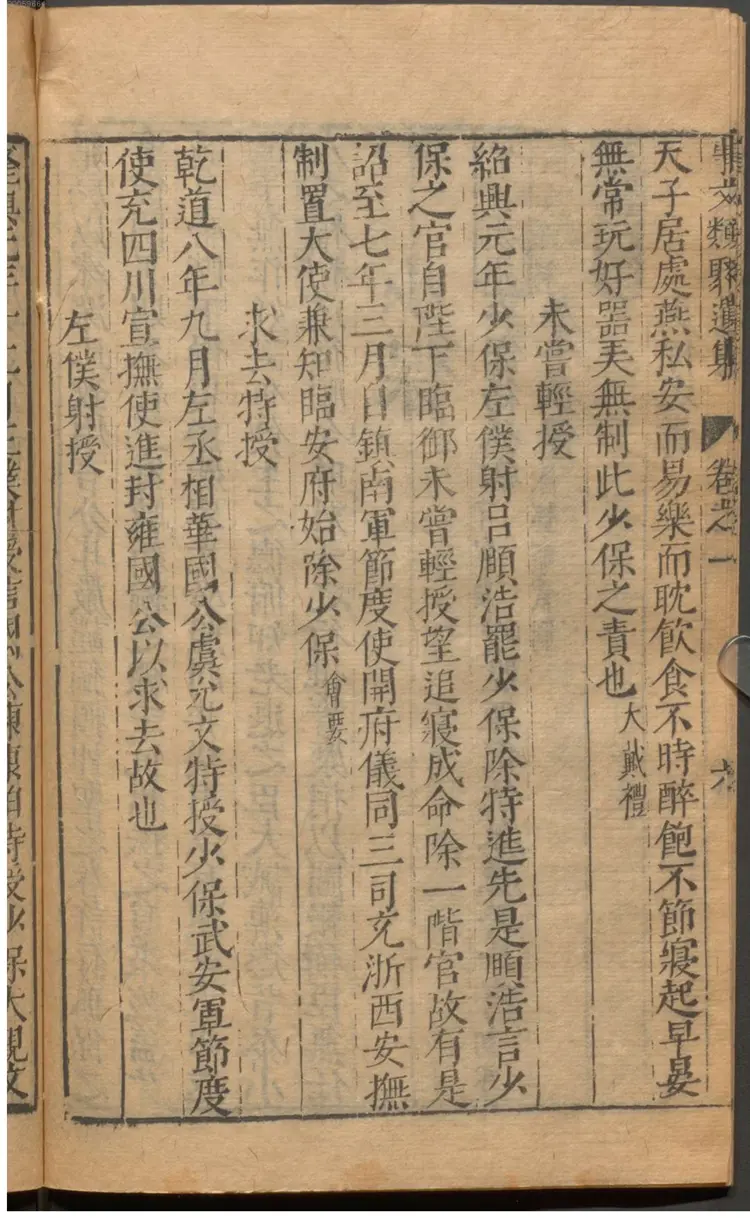 事文類聚遺集 卷之一 六
天子居處燕私安而易樂而耽飲食不時醉飽不節寢起早晏
無常玩好器美無制此少保之責也大戴禮
未嘗輕授
紹興元年少保左僕射呂頤浩罷少保除特進先是頤浩言少
保之官自陛下臨御未嘗輕授望追寢成命除一階官故有是
詔至七年三月日鎮南軍節度使開府儀同三司充浙西安撫
制置大使兼知臨安府始除少保會要
求去特授
乾道八年九月左丞相華國公虞允文特授少保武安軍節度
使充四川宣撫使進封雍國公以求去故也
左僕射授